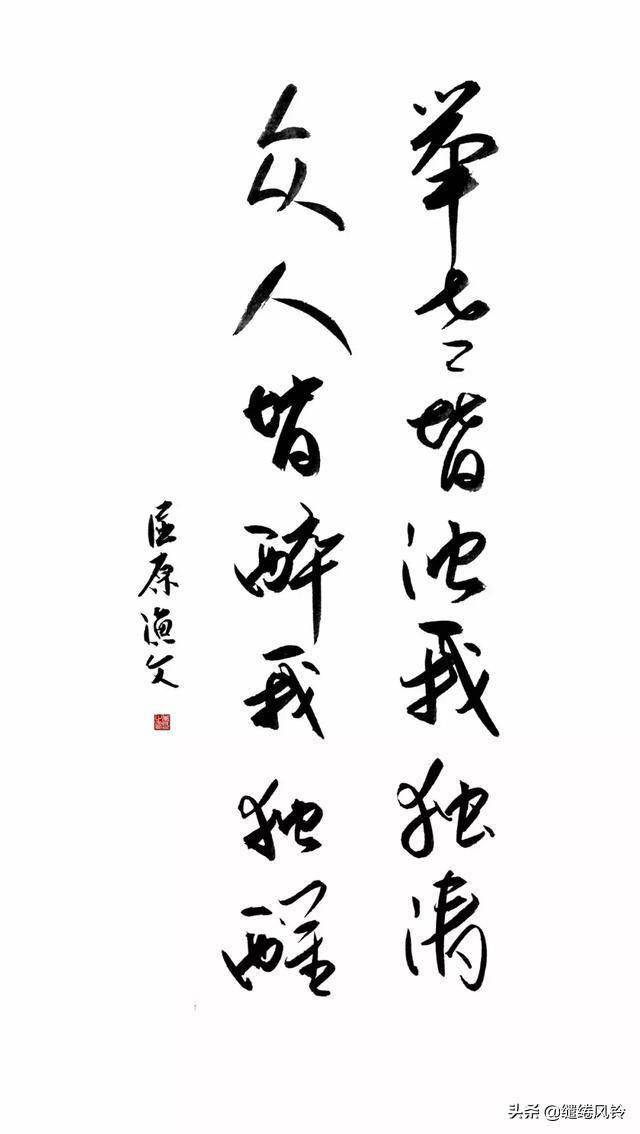 举世皆浊我独清
众人皆醉我独醒
屈原渔父
头条 @缱绻风铃